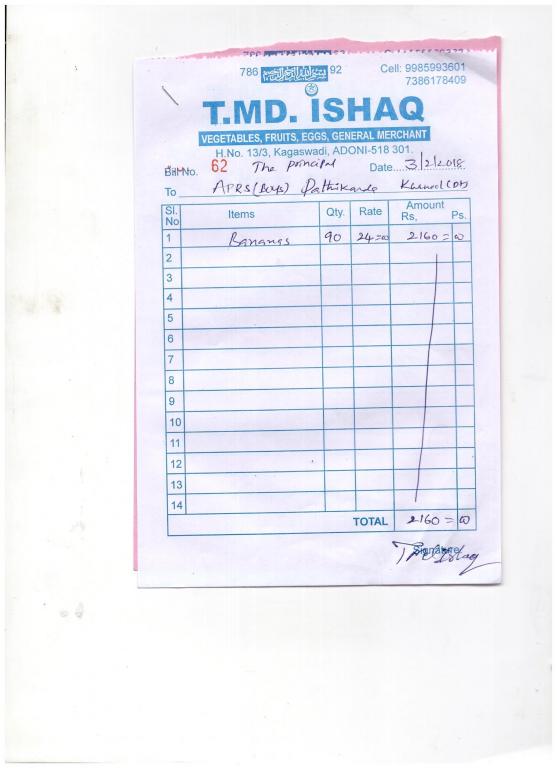 786 92 Cell: 9985993601
7386178409
T.MD. ISHAQ
VEGETABLES, FRUITS, EGGS, GENERAL MERCHANT
H.No. 13/3, Kagaswadi, ADONI-518 301.
Bill No. 62 The principal Date....3/2/2018
To APRS (Boys)
Sl. No Items Qty. Rate Amount Rs, Ps.
1 Bananas 90 24=00 2160=00
2
3
4
5
6
7
8
9
10
11
12
13
14
TOTAL 2160=00
Signature